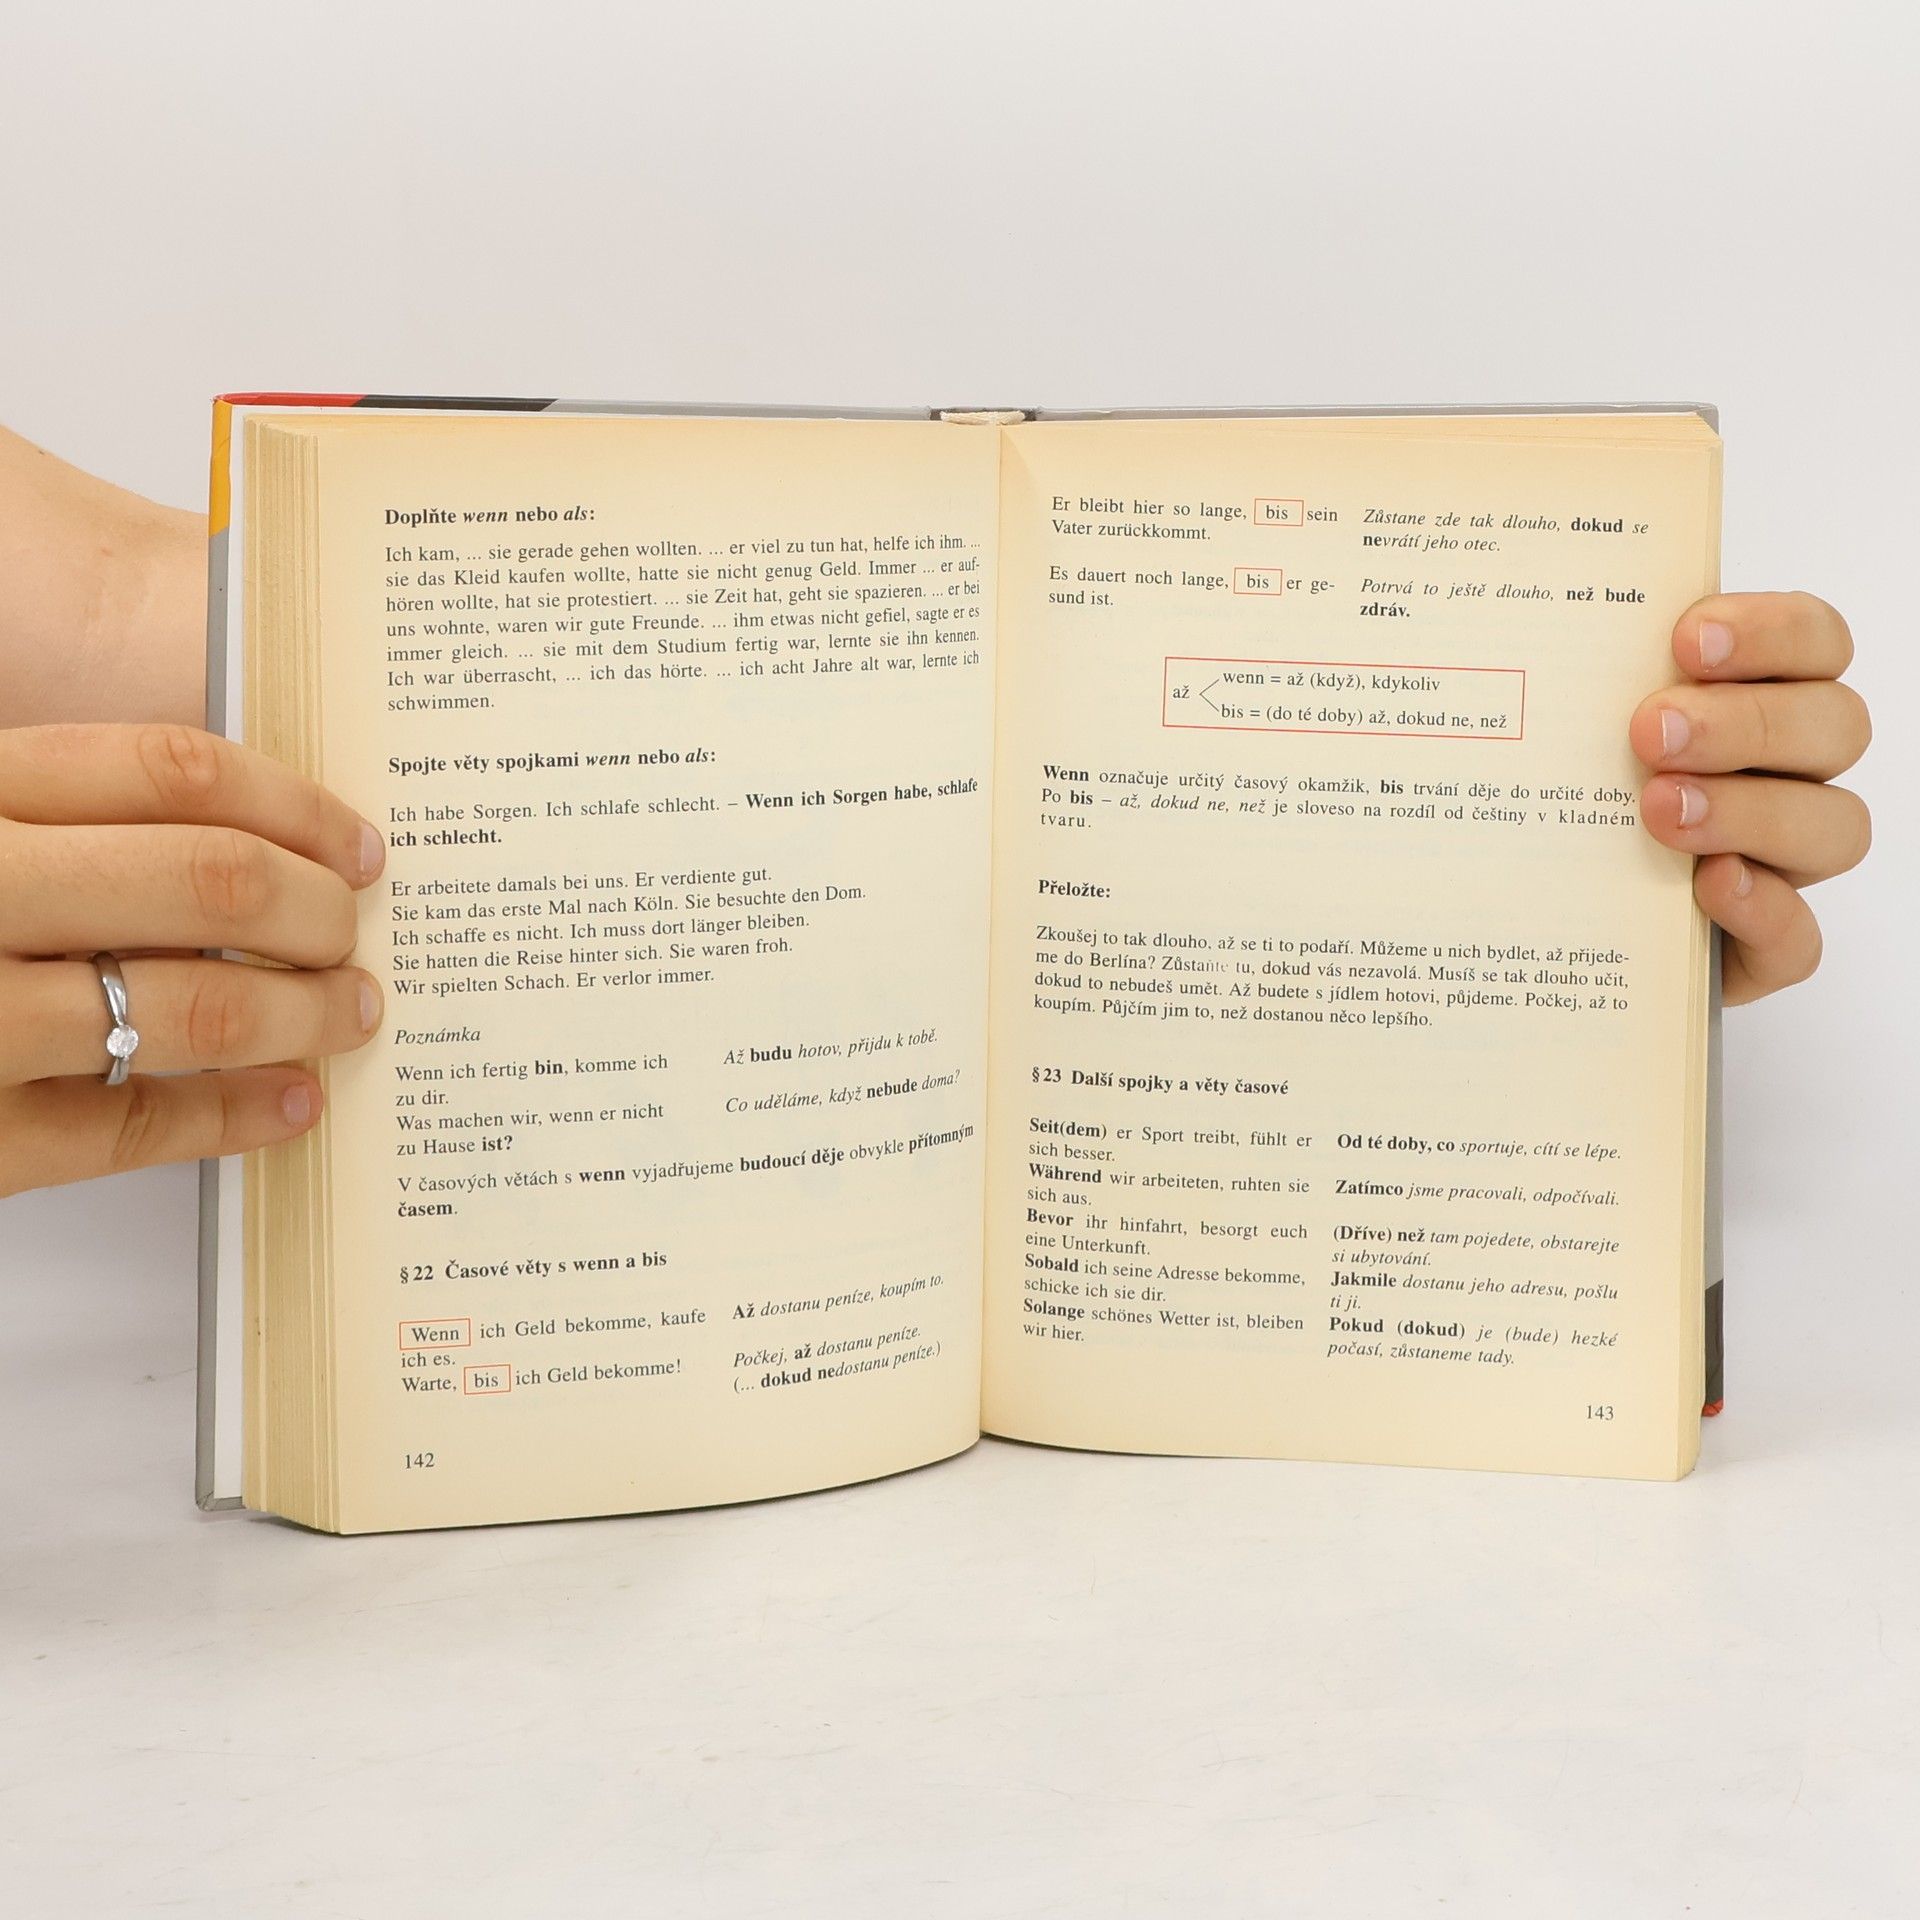 Doplňte wenn nebo als:
Ich kam, ... sie gerade gehen wollten. ... er viel zu tun hat, helfe ich ihm. ...
sie das Kleid kaufen wollte, hatte sie nicht genug Geld. Immer ... er auf-
hören wollte, hat sie protestiert. ... sie Zeit hat, geht sie spazieren. ... er bei
uns wohnte, waren wir gute Freunde. ... ihm etwas nicht gefiel, sagte er es
immer gleich. ... sie mit dem Studium fertig war, lernte sie ihn kennen.
Ich war überrascht, ... ich das hörte. ... ich acht Jahre alt war, lernte ich
schwimmen.
Spojte věty spojkami wenn nebo als:
Ich habe Sorgen. Ich schlafe schlecht. – Wenn ich Sorgen habe, schlafe
ich schlecht.
Er arbeitete damals bei uns. Er verdiente gut.
Sie kam das erste Mal nach Köln. Sie besuchte den Dom.
Ich schaffe es nicht. Ich muss dort länger bleiben.
Sie hatten die Reise hinter sich. Sie waren froh.
Wir spielten Schach. Er verlor immer.
Poznámka
Wenn ich fertig bin, komme ich
zu dir.
Až budu hotov, přijdu k tobě.
Was machen wir, wenn er nicht
zu Hause ist?
Co uděláme, když nebude doma?
V časových větách s wenn vyjadřujeme budoucí děje obvykle přítomným
časem.
§ 22 Časové věty s wenn a bis
Wenn ich Geld bekomme, kaufe
ich es.
Až dostanu peníze, koupím to.
Warte, bis ich Geld bekomme!
Počkej, až dostanu peníze.
(... dokud nedostanu peníze.)
142
Er bleibt hier so lange, bis sein
Vater zurückkommt.
Zůstane zde tak dlouho, dokud se
nevrátí jeho otec.
Es dauert noch lange, bis er ge-
sund ist.
Potrvá to ještě dlouho, než bude
zdráv.
až
wenn = až (když), kdykoliv
bis = (do té doby) až, dokud ne, než
Wenn označuje určitý časový okamžik, bis trvání děje do určité doby.
Po bis – až, dokud ne, než je sloveso na rozdíl od češtiny v kladném
tvaru.
Přeložte:
Zkoušej to tak dlouho, až se ti to podaří. Můžeme u nich bydlet, až přijede-
me do Berlína? Zůstaňte tu, dokud vás nezavolá. Musíš se tak dlouho učit,
dokud to nebudeš umět. Až budete s jídlem hotovi, půjdeme. Počkej, až to
koupím. Půjčím jim to, než dostanou něco lepšího.
§ 23 Další spojky a věty časové
Seit(dem) er Sport treibt, fühlt er
sich besser.
Od té doby, co sportuje, cítí se lépe.
Während wir arbeiteten, ruhten sie
sich aus.
Zatímco jsme pracovali, odpočívali.
Bevor ihr hinfahrt, besorgt euch
eine Unterkunft.
(Dříve) než tam pojedete, obstarejte
si ubytování.
Sobald ich seine Adresse bekomme,
schicke ich sie dir.
Jakmile dostanu jeho adresu, pošlu
ti ji.
Solange schönes Wetter ist, bleiben
wir hier.
Pokud (dokud) je (bude) hezké
počasí, zůstaneme tady.
143